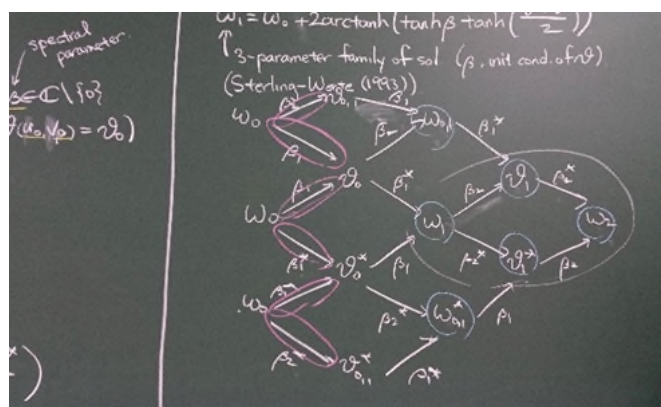 spectral
parameter.
β∈ℂ\{0}
(u₀,v₀) = ϑ₀)
ω₁ = ω₀ + 2arctanh(tanhβ tanh(
2
))
3-parameter family of sol (β, init cond. of ϑ)
(Sterling-Wente (1993))
ω₀
β₂
ϑ₀,₁
β₁
β₁
β₂
ω₀,₁
β₁*
ω₀
β₁
ϑ₀
β₁*
β₂
ϑ₁
β₂*
β₁*
ϑ₀*
β₁
ω₁
β₂*
ϑ₁*
β₂
ω₂
ω₀
β₁*
β₂*
ω₀,₁*
β₁
β₂*
ϑ₀,₁*
β₁*
*
)